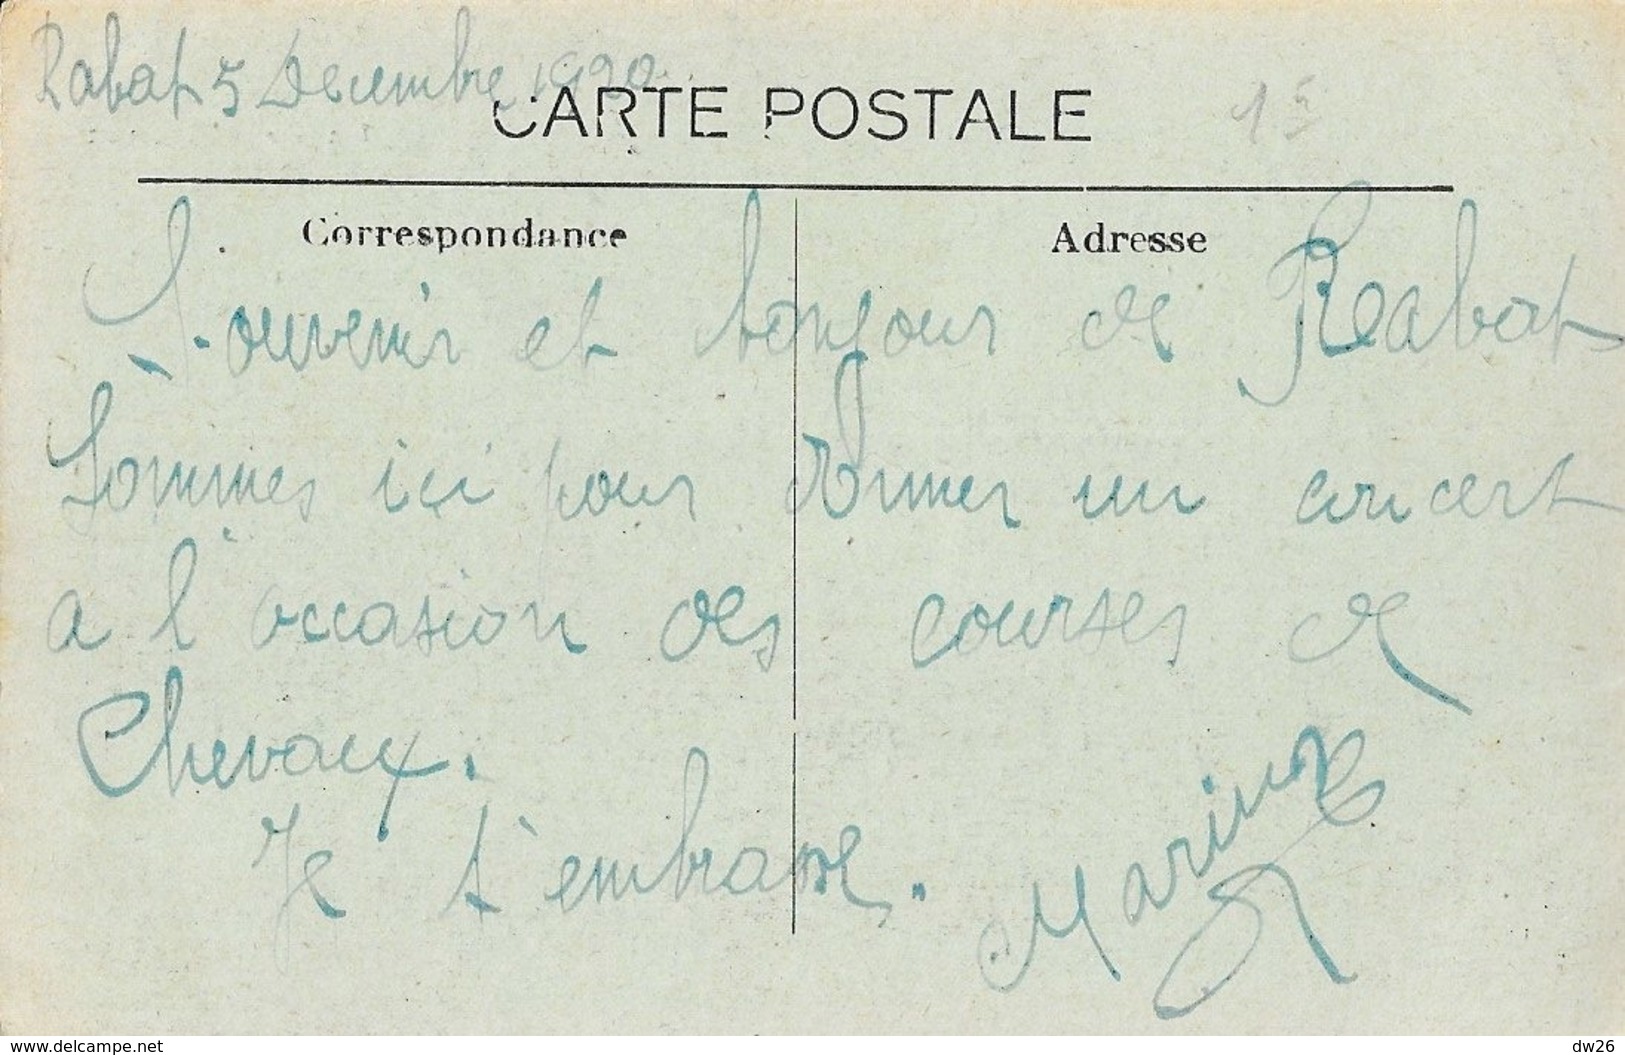 Rabat 5 Decembre 1920
CARTE POSTALE
Correspondance
Adresse
Souvenir et bonjour de Rabat
Sommes ici pour donner un concert
a l'occasion des courses de
Chevaux.
Je t'embrasse.
www.delcampe.net
dw26